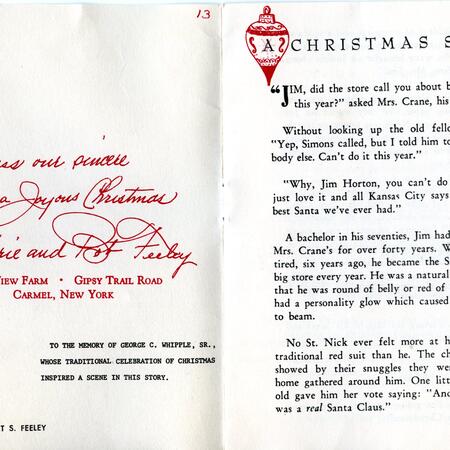 13
ss our sincere
a Joyous Christmas
rie and Bob Feeley
View Farm • Gipsy Trail Road
Carmel, New York
TO THE MEMORY OF GEORGE C. WHIPPLE, SR.,
WHOSE TRADITIONAL CELEBRATION OF CHRISTMAS
INSPIRED A SCENE IN THIS STORY.
T S. FEELEY
A CHRISTMAS S
"JIM, did the store call you about b
this year?" asked Mrs. Crane, his
Without looking up the old fello
"Yep, Simons called, but I told him to
body else. Can't do it this year."
"Why, Jim Horton, you can't do
just love it and all Kansas City says
best Santa we've ever had."
A bachelor in his seventies, Jim had
Mrs. Crane's for over forty years. W
tired, six years ago, he became the S
big store every year. He was a natural
that he was round of belly or red of
had a personality glow which caused
to beam.
No St. Nick ever felt more at h
traditional red suit than he. The ch
showed by their snuggles they wer
home gathered around him. One littl
old gave him her vote saying: "And
was a real Santa Claus."